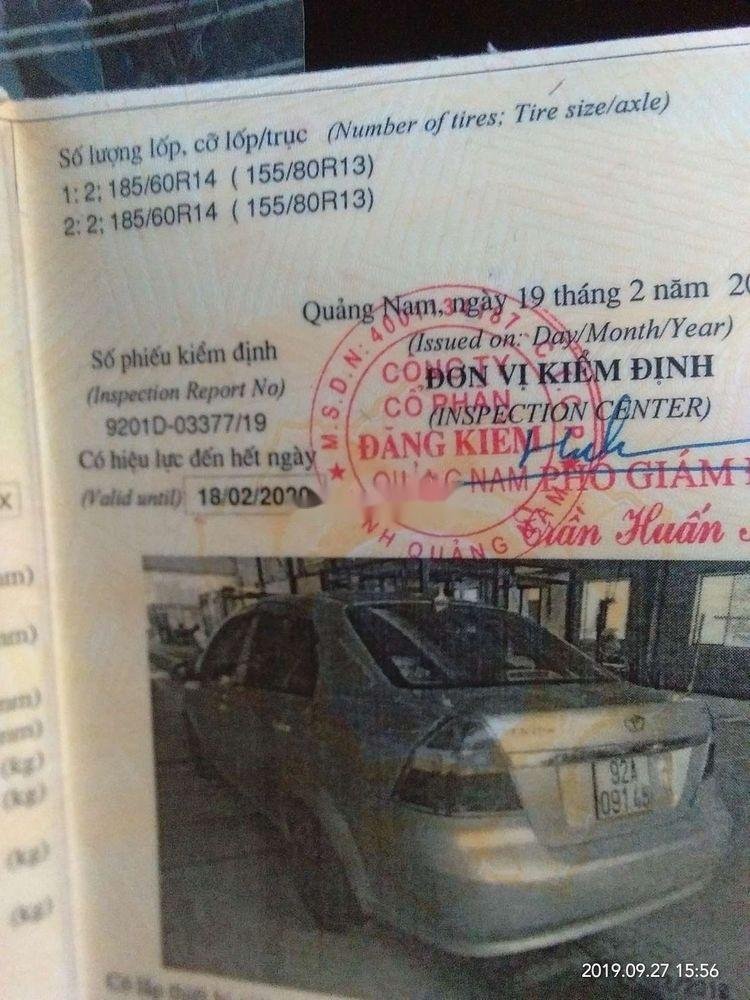 Số lượng lốp, cỡ lốp/trục (Number of tires; Tire size/axle)
1: 2; 185/60R14 ( 155/80R13)
2: 2; 185/60R14 ( 155/80R13)
Quảng Nam, ngày 19 tháng 2 năm 20
(Issued on: Day/Month/Year)
Số phiếu kiểm định
(Inspection Report No)
9201D-03377/19
ĐƠN VỊ KIỂM ĐỊNH
(INSPECTION CENTER)
Có hiệu lực đến hết ngày
(Valid until) 18/02/2020
M.S.D.N: 400
CÔNG TY
CỔ PHẦN
ĐĂNG KIỂM
QUẢNG NAM
PHÓ GIÁM
Trần Huấn
NH QUẢNG NAM
X
mm)
mm)
mm)
mm)
(kg)
(kg)
(kg)
(kg)
92A
091.45
2019.09.27 15:56